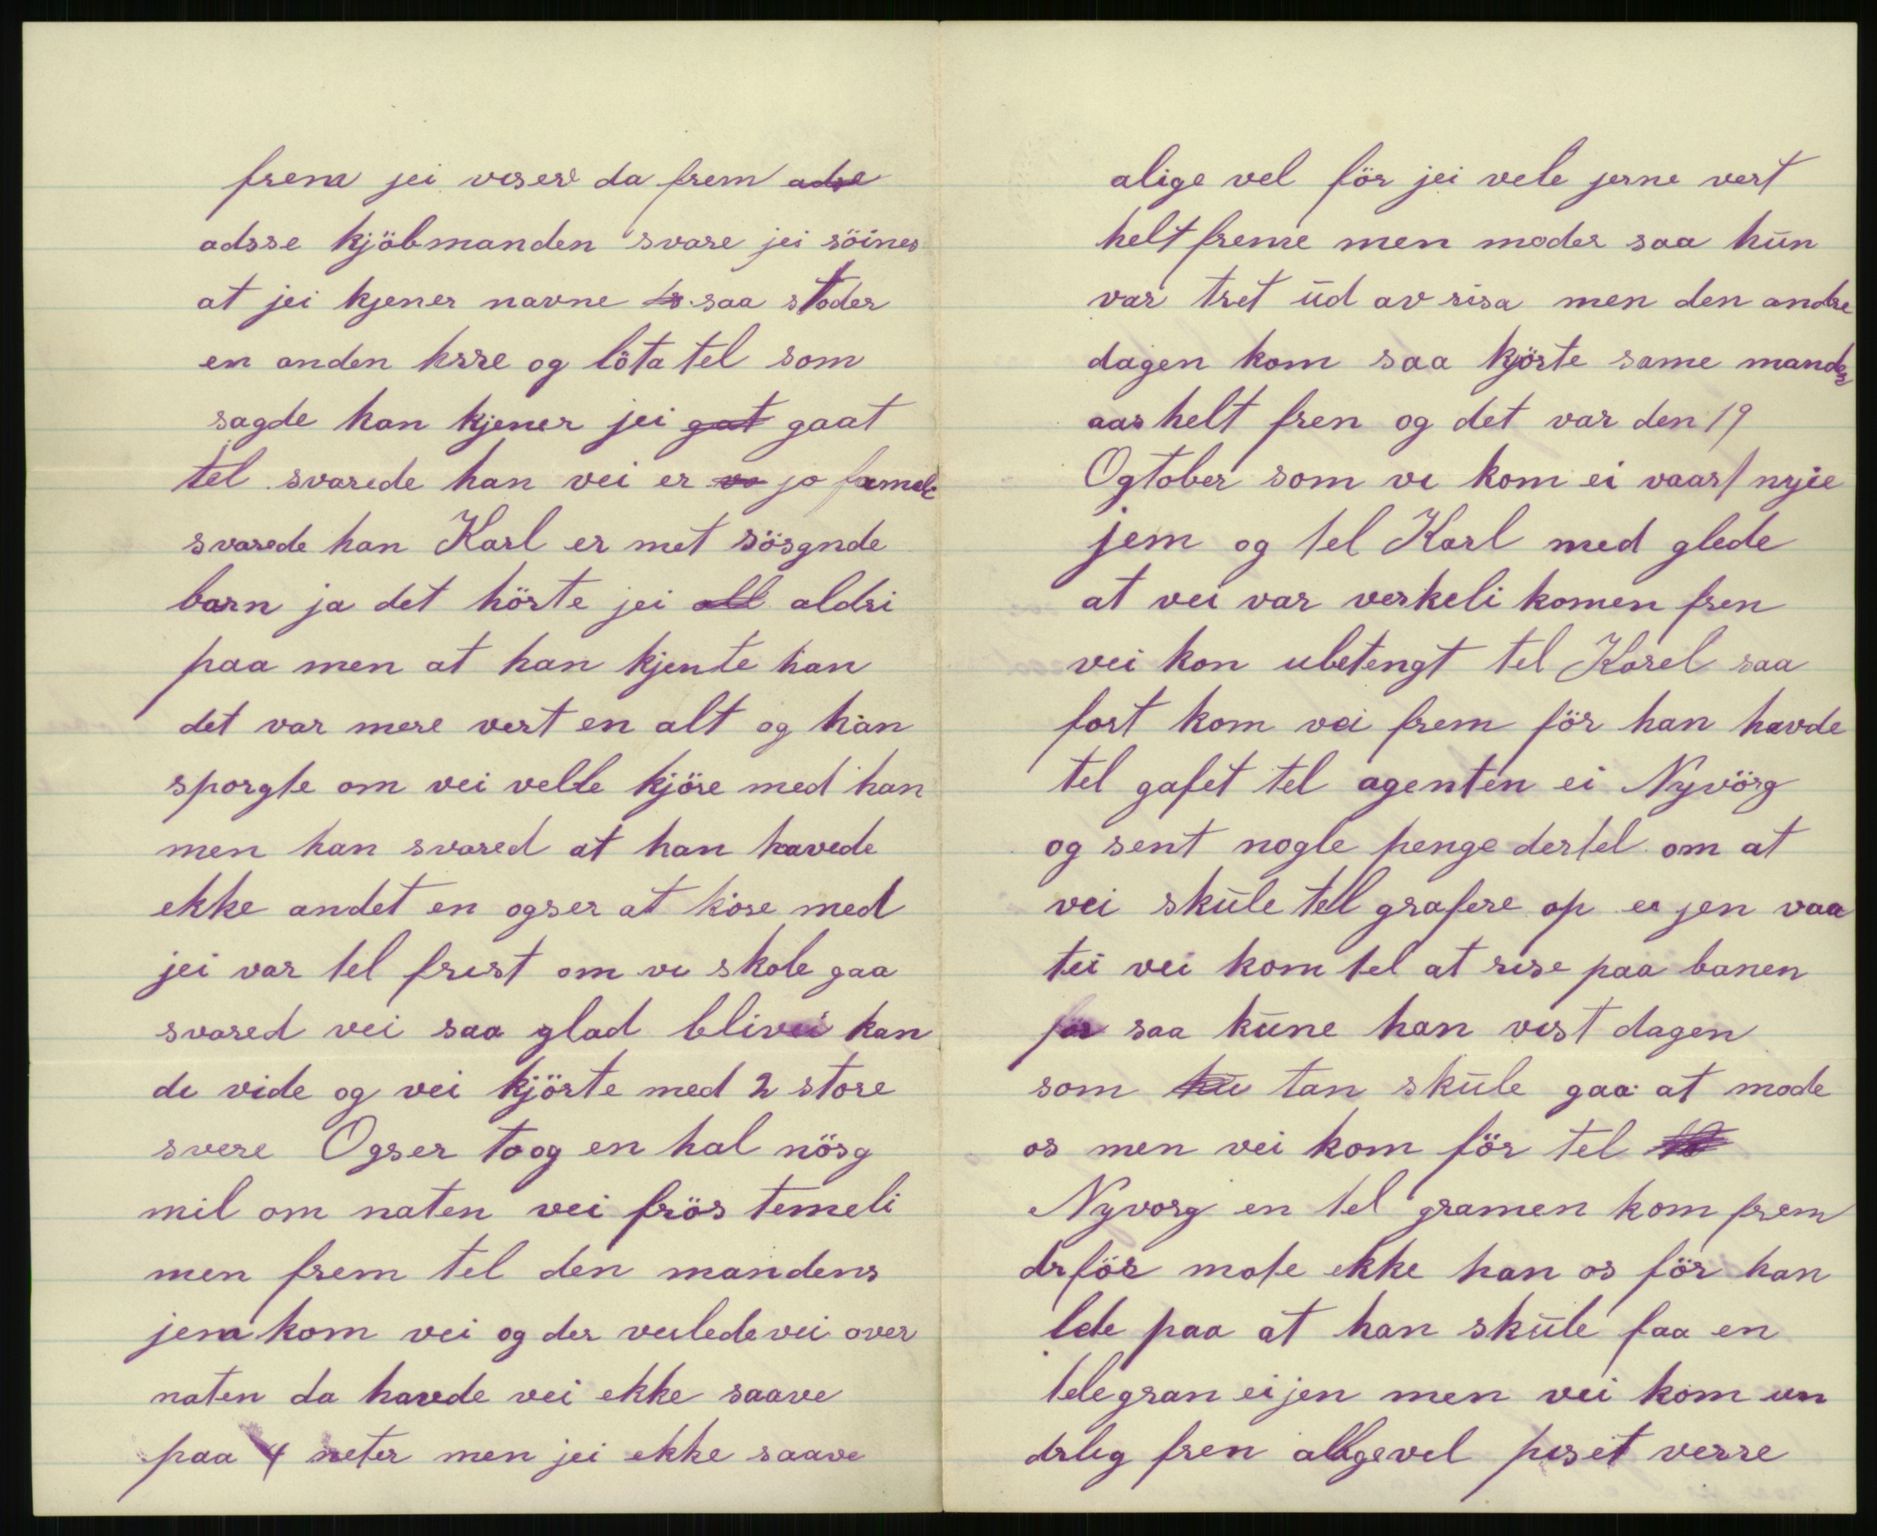 frem jei viser da frem adse
adsse kjöbmanden svare jei söines
at jei kjener navne saa stoder
en anden hrre og löta tel som
sagde han kjener jei gat gaat
tel svarede han vei er vo jo famele
svarede han Karl er met sösgnde
barn ja det hörte jei all aldri
paa men at han kjente han
det var mere vert en alt og han
sporgte om vei velle kjöre med han
men han svared at han havede
ekke andet en ogser at köre med
jei var tel frist om vi skole gaa
svared vei saa glad blivei kan
di vide og vei kjörte med 2 store
svere Ogser toog en hal nörg
mil om naten vei frös temeli
men frem tel den mandens
jem kom vei og der veilede vei over
naten da havde vei ekke saave
paa 4 neter men jei ekke saave
alige vel för jei vele jerne vert
helt freme men moder saa hun
var tret ud av risa men den andre
dagen kom saa kjörte same manden
aas helt fren og det var den 19
Ogtober som vi kom ei vaart nyie
jem og tel Karl med glede
at vei var verkeli komen fren
vei kon ubetengt tel Karel saa
fort kom vei frem för han havde
tel gafet tel agenten ei Nyvörg
og sent nogle penge dertel om at
vei skule tell grafere op ei jen vaa
tei vei kom tel at rise paa banen
för saa kune han vist dagen
som hu tan skule gaa at mode
os men vei kom för tel
Nyvorg en tel gramen kom frem
drför mote ekke han os för han
lde paa at han skule faa en
telegran ei jen men vei kom un
drlig fren alligevel piset verre